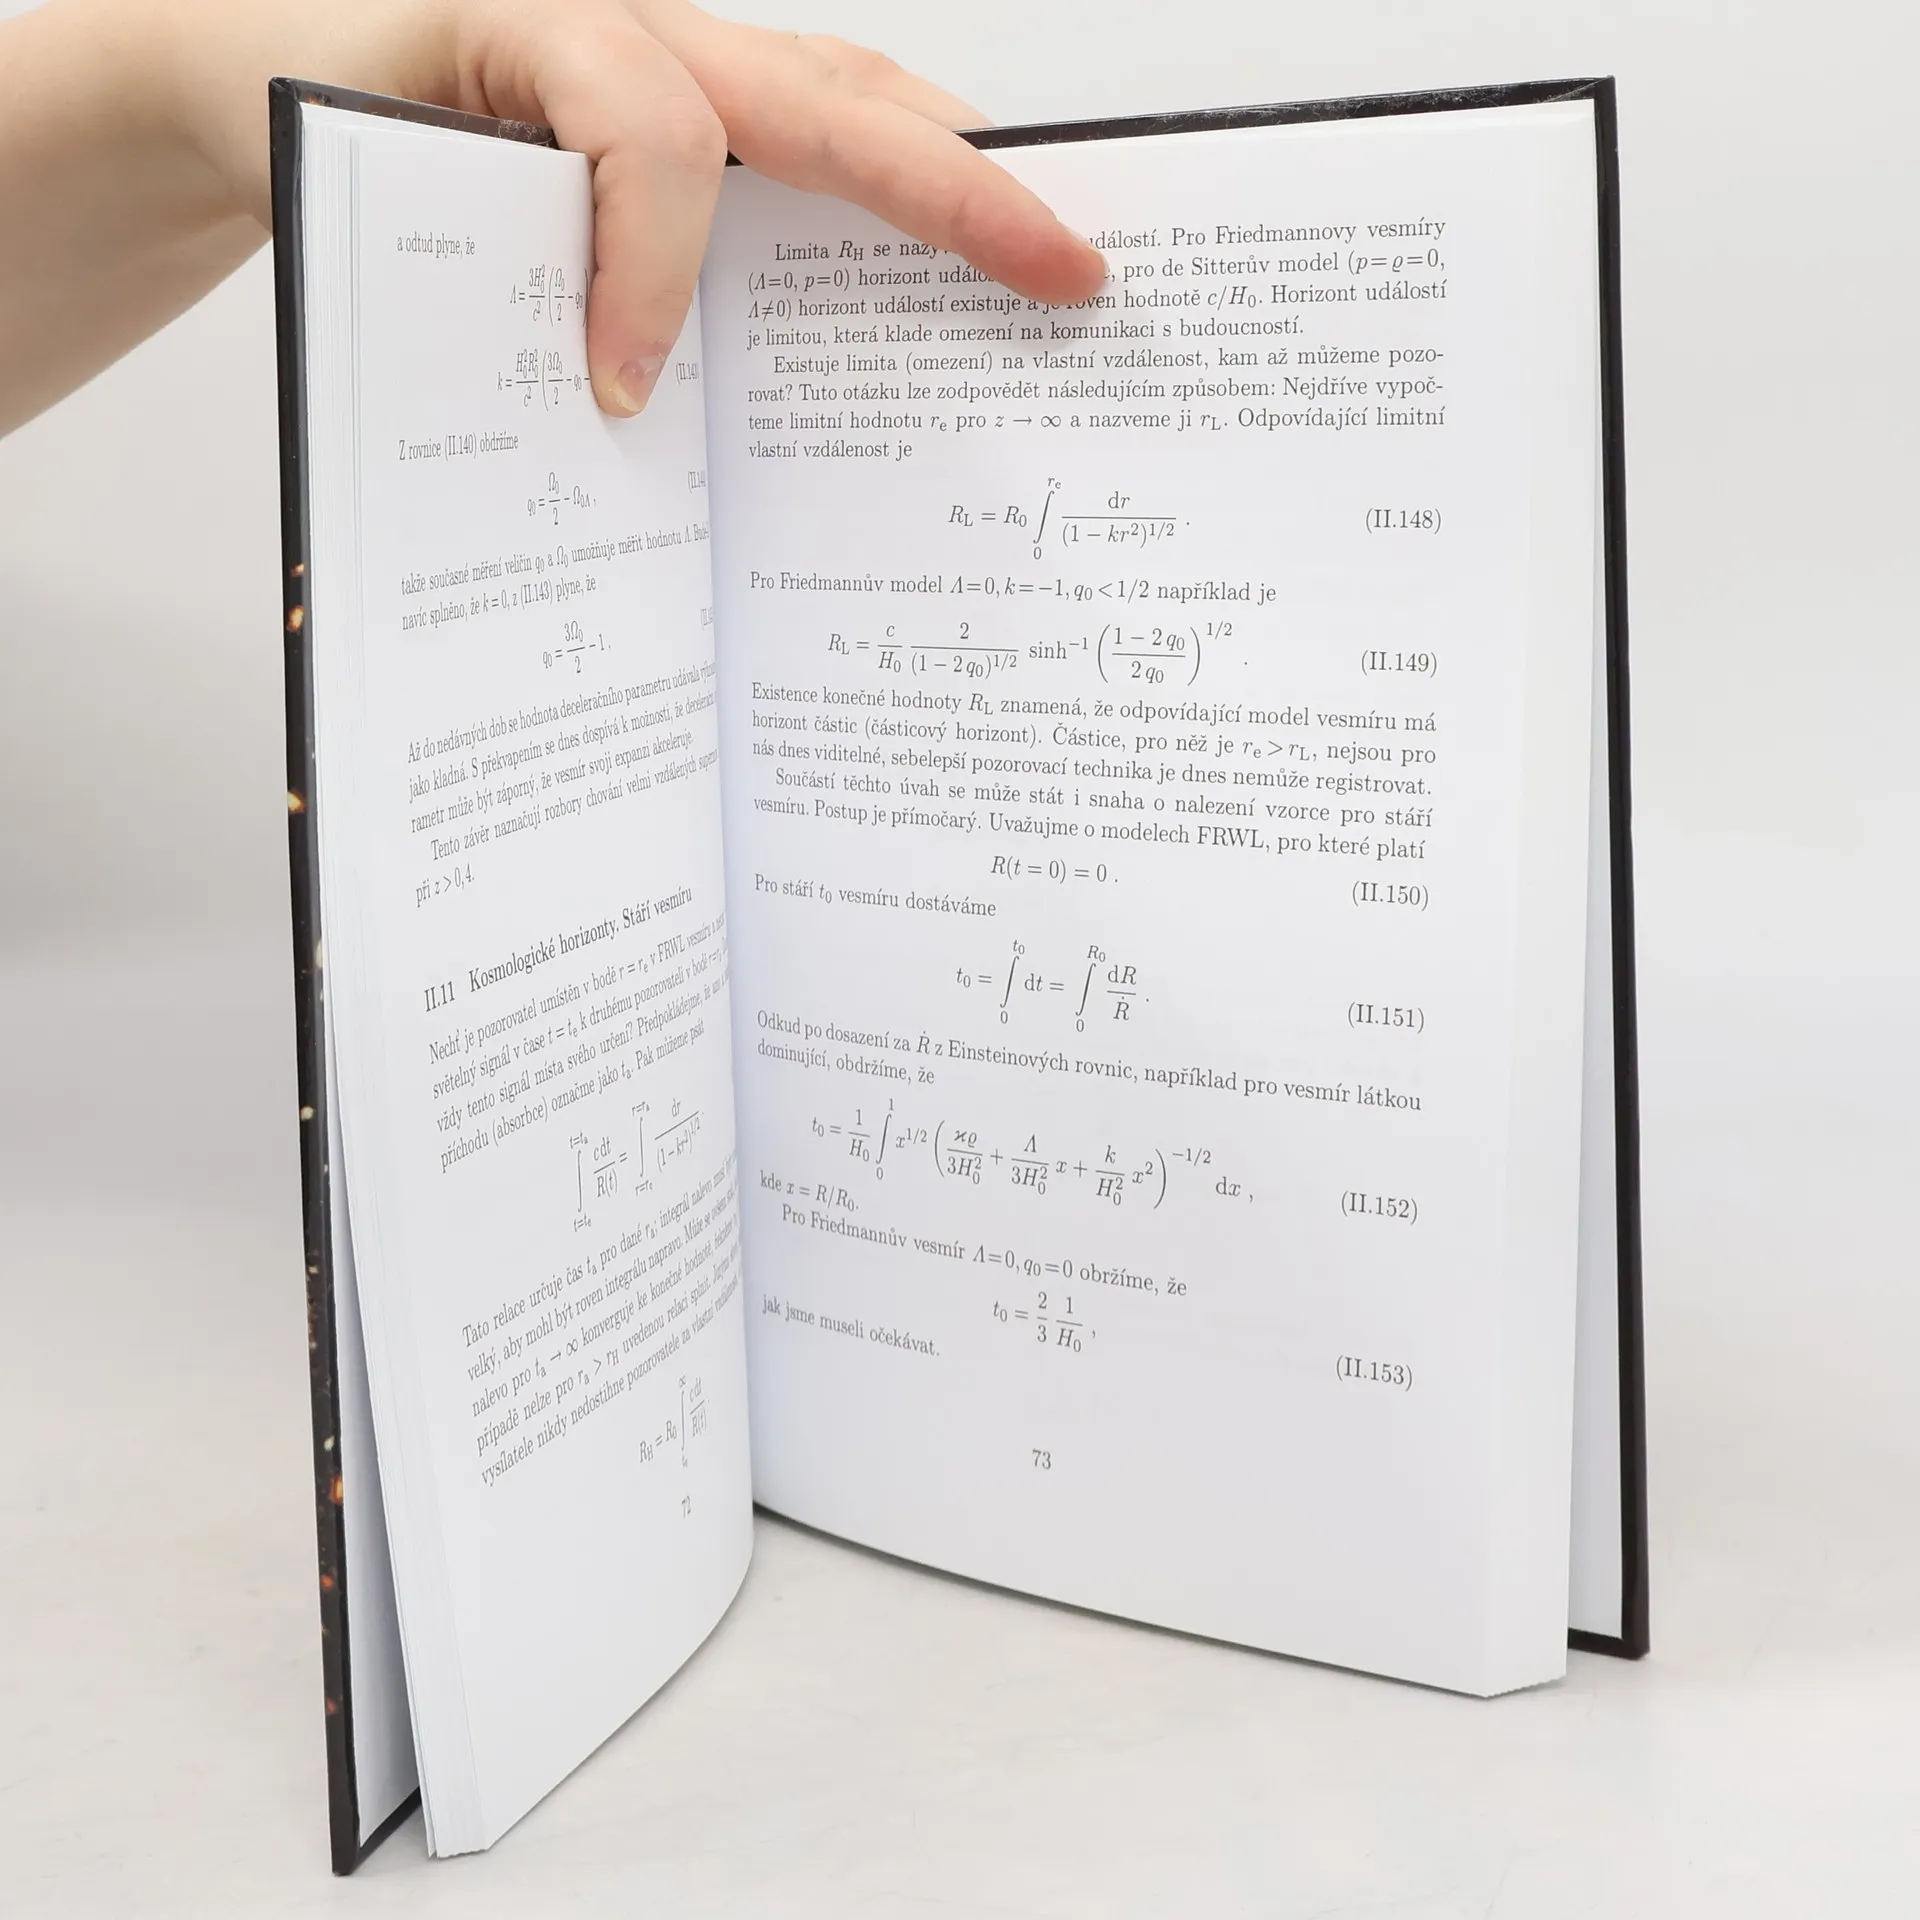 a odtud plyne, že
Λ = 3H₀²/c² (Ω₀/2 − q₀
k = H₀²R₀²/c² (3Ω₀/2 − q₀ − (II.143)
Z rovnice (II.140) obdržíme
q₀ = Ω₀/2 − Ω₀Λ ,
takže současné měření veličin q₀ a Ω₀ umožňuje měřit hodnotu Λ.
navíc splněno, že k = 0, z (II.143) plyne, že
q₀ = 3Ω₀/2 − 1 .
Až do nedávných dob se hodnota deceleračního parametru udávala
jako kladná. S překvapením se dnes dospívá k možnosti, že
rametr může být záporný, že vesmír svoji expanzi akceleruje.
Tento závěr naznačují rozbory chování velmi vzdálených
při z > 0,4.
II.11 Kosmologické horizonty. Stáří vesmíru
Nechť je pozorovatel umístěn v bodě r = rₑ v FRWL vesmíru
světelný signál v čase t = tₑ k druhému pozorovateli v bodě
vždy tento signál místa svého určení? Předpokládejme, že
příchodu (absorbce) označme jako tₐ. Pak můžeme psát
∫_{t=tₑ}^{t=tₐ} c dt/R(t) = ∫_{r=rₑ}^{r=rₐ} dr/(1 − kr²)^{1/2} .
Tato relace určuje čas tₐ pro dané rₐ; integrál nalevo musí být
velký, aby mohl být roven integrálu napravo. Může se
nalevo pro tₐ → ∞ konverguje ke konečné hodnotě,
případě nelze pro rₐ > r_H uvedenou relaci splnit.
vysílatele nikdy nedostihne pozorovatele za vlastní
R_H = R₀ ∫_{tₑ}^{∞} c dt/R(t)
72
Limita R_H se událostí. Pro Friedmannovy vesmíry
(Λ=0, p=0) horizont pro de Sitterův model (p=ϱ=0,
Λ≠0) horizont událostí existuje a je roven hodnotě c/H₀. Horizont událostí
je limitou, která klade omezení na komunikaci s budoucností.
Existuje limita (omezení) na vlastní vzdálenost, kam až můžeme pozo-
rovat? Tuto otázku lze zodpovědět následujícím způsobem: Nejdříve vypoč-
teme limitní hodnotu rₑ pro z → ∞ a nazveme ji r_L. Odpovídající limitní
vlastní vzdálenost je
R_L = R₀ ∫_0^{rₑ} dr/(1 − kr²)^{1/2} . (II.148)
Pro Friedmannův model Λ=0, k=−1, q₀<1/2 například je
R_L = c/H₀ 2/(1 − 2q₀)^{1/2} sinh⁻¹ ((1 − 2q₀)/(2q₀))^{1/2} . (II.149)
Existence konečné hodnoty R_L znamená, že odpovídající model vesmíru má
horizont částic (částicový horizont). Částice, pro něž je rₑ>r_L, nejsou pro
nás dnes viditelné, sebelepší pozorovací technika je dnes nemůže registrovat.
Součástí těchto úvah se může stát i snaha o nalezení vzorce pro stáří
vesmíru. Postup je přímočarý. Uvažujme o modelech FRWL, pro které platí
R(t = 0) = 0 . (II.150)
Pro stáří t₀ vesmíru dostáváme
t₀ = ∫_0^{t₀} dt = ∫_0^{R₀} dR/Ṙ . (II.151)
Odkud po dosazení za Ṙ z Einsteinových rovnic, například pro vesmír látkou
dominující, obdržíme, že
t₀ = 1/H₀ ∫_0^1 x^{1/2} (ϰϱ/3H₀² + Λ/3H₀² x + k/H₀² x²)^{−1/2} dx , (II.152)
kde x = R/R₀.
Pro Friedmannův vesmír Λ=0, q₀=0 obržíme, že
t₀ = 2/3 1/H₀ , (II.153)
jak jsme museli očekávat.
73